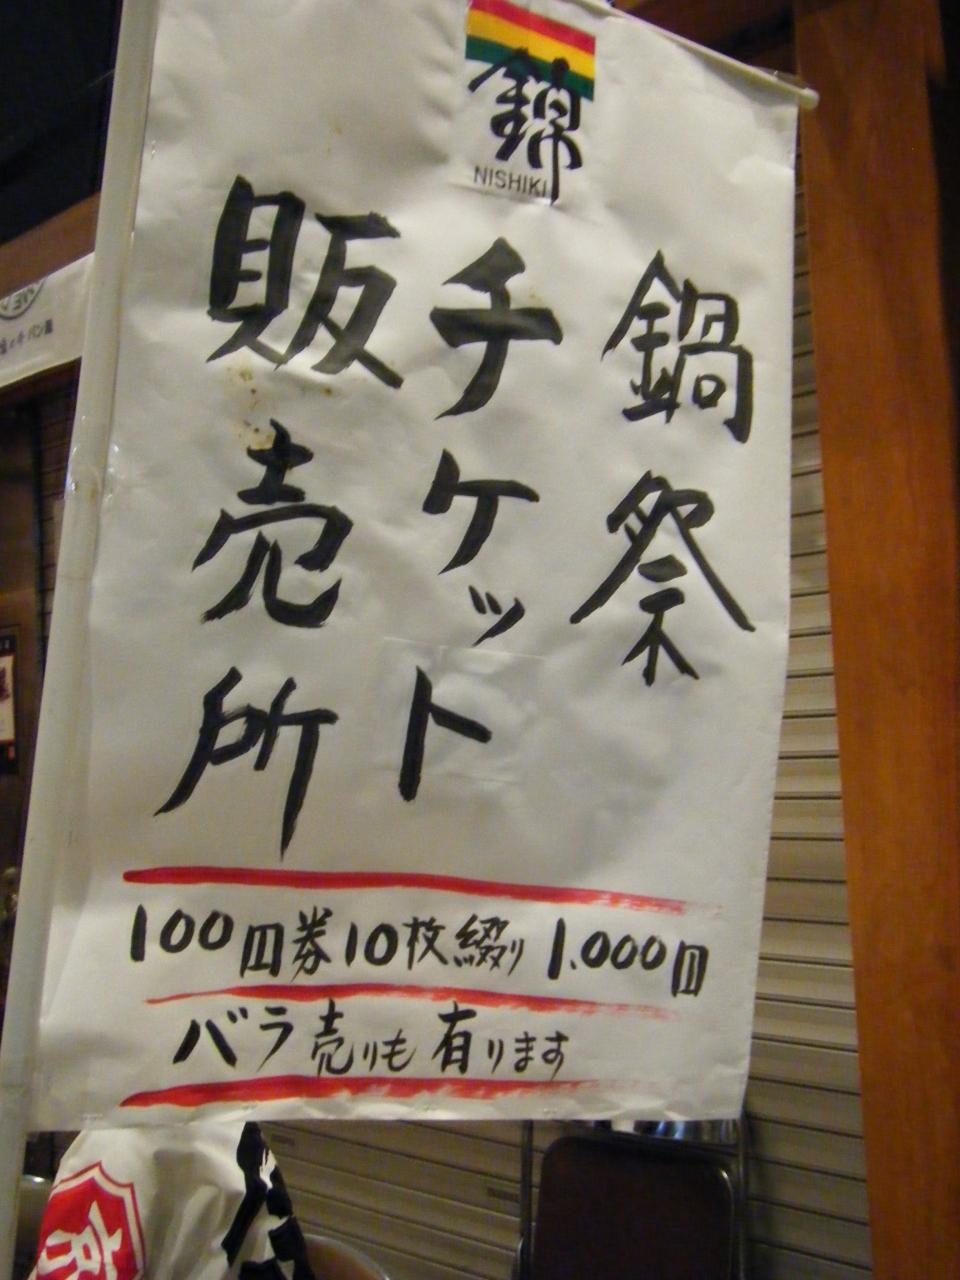 錦
NISHIKI
鍋祭
チケット
販売所
100円券10枚綴り 1.000円
バラ売りも有ります
京